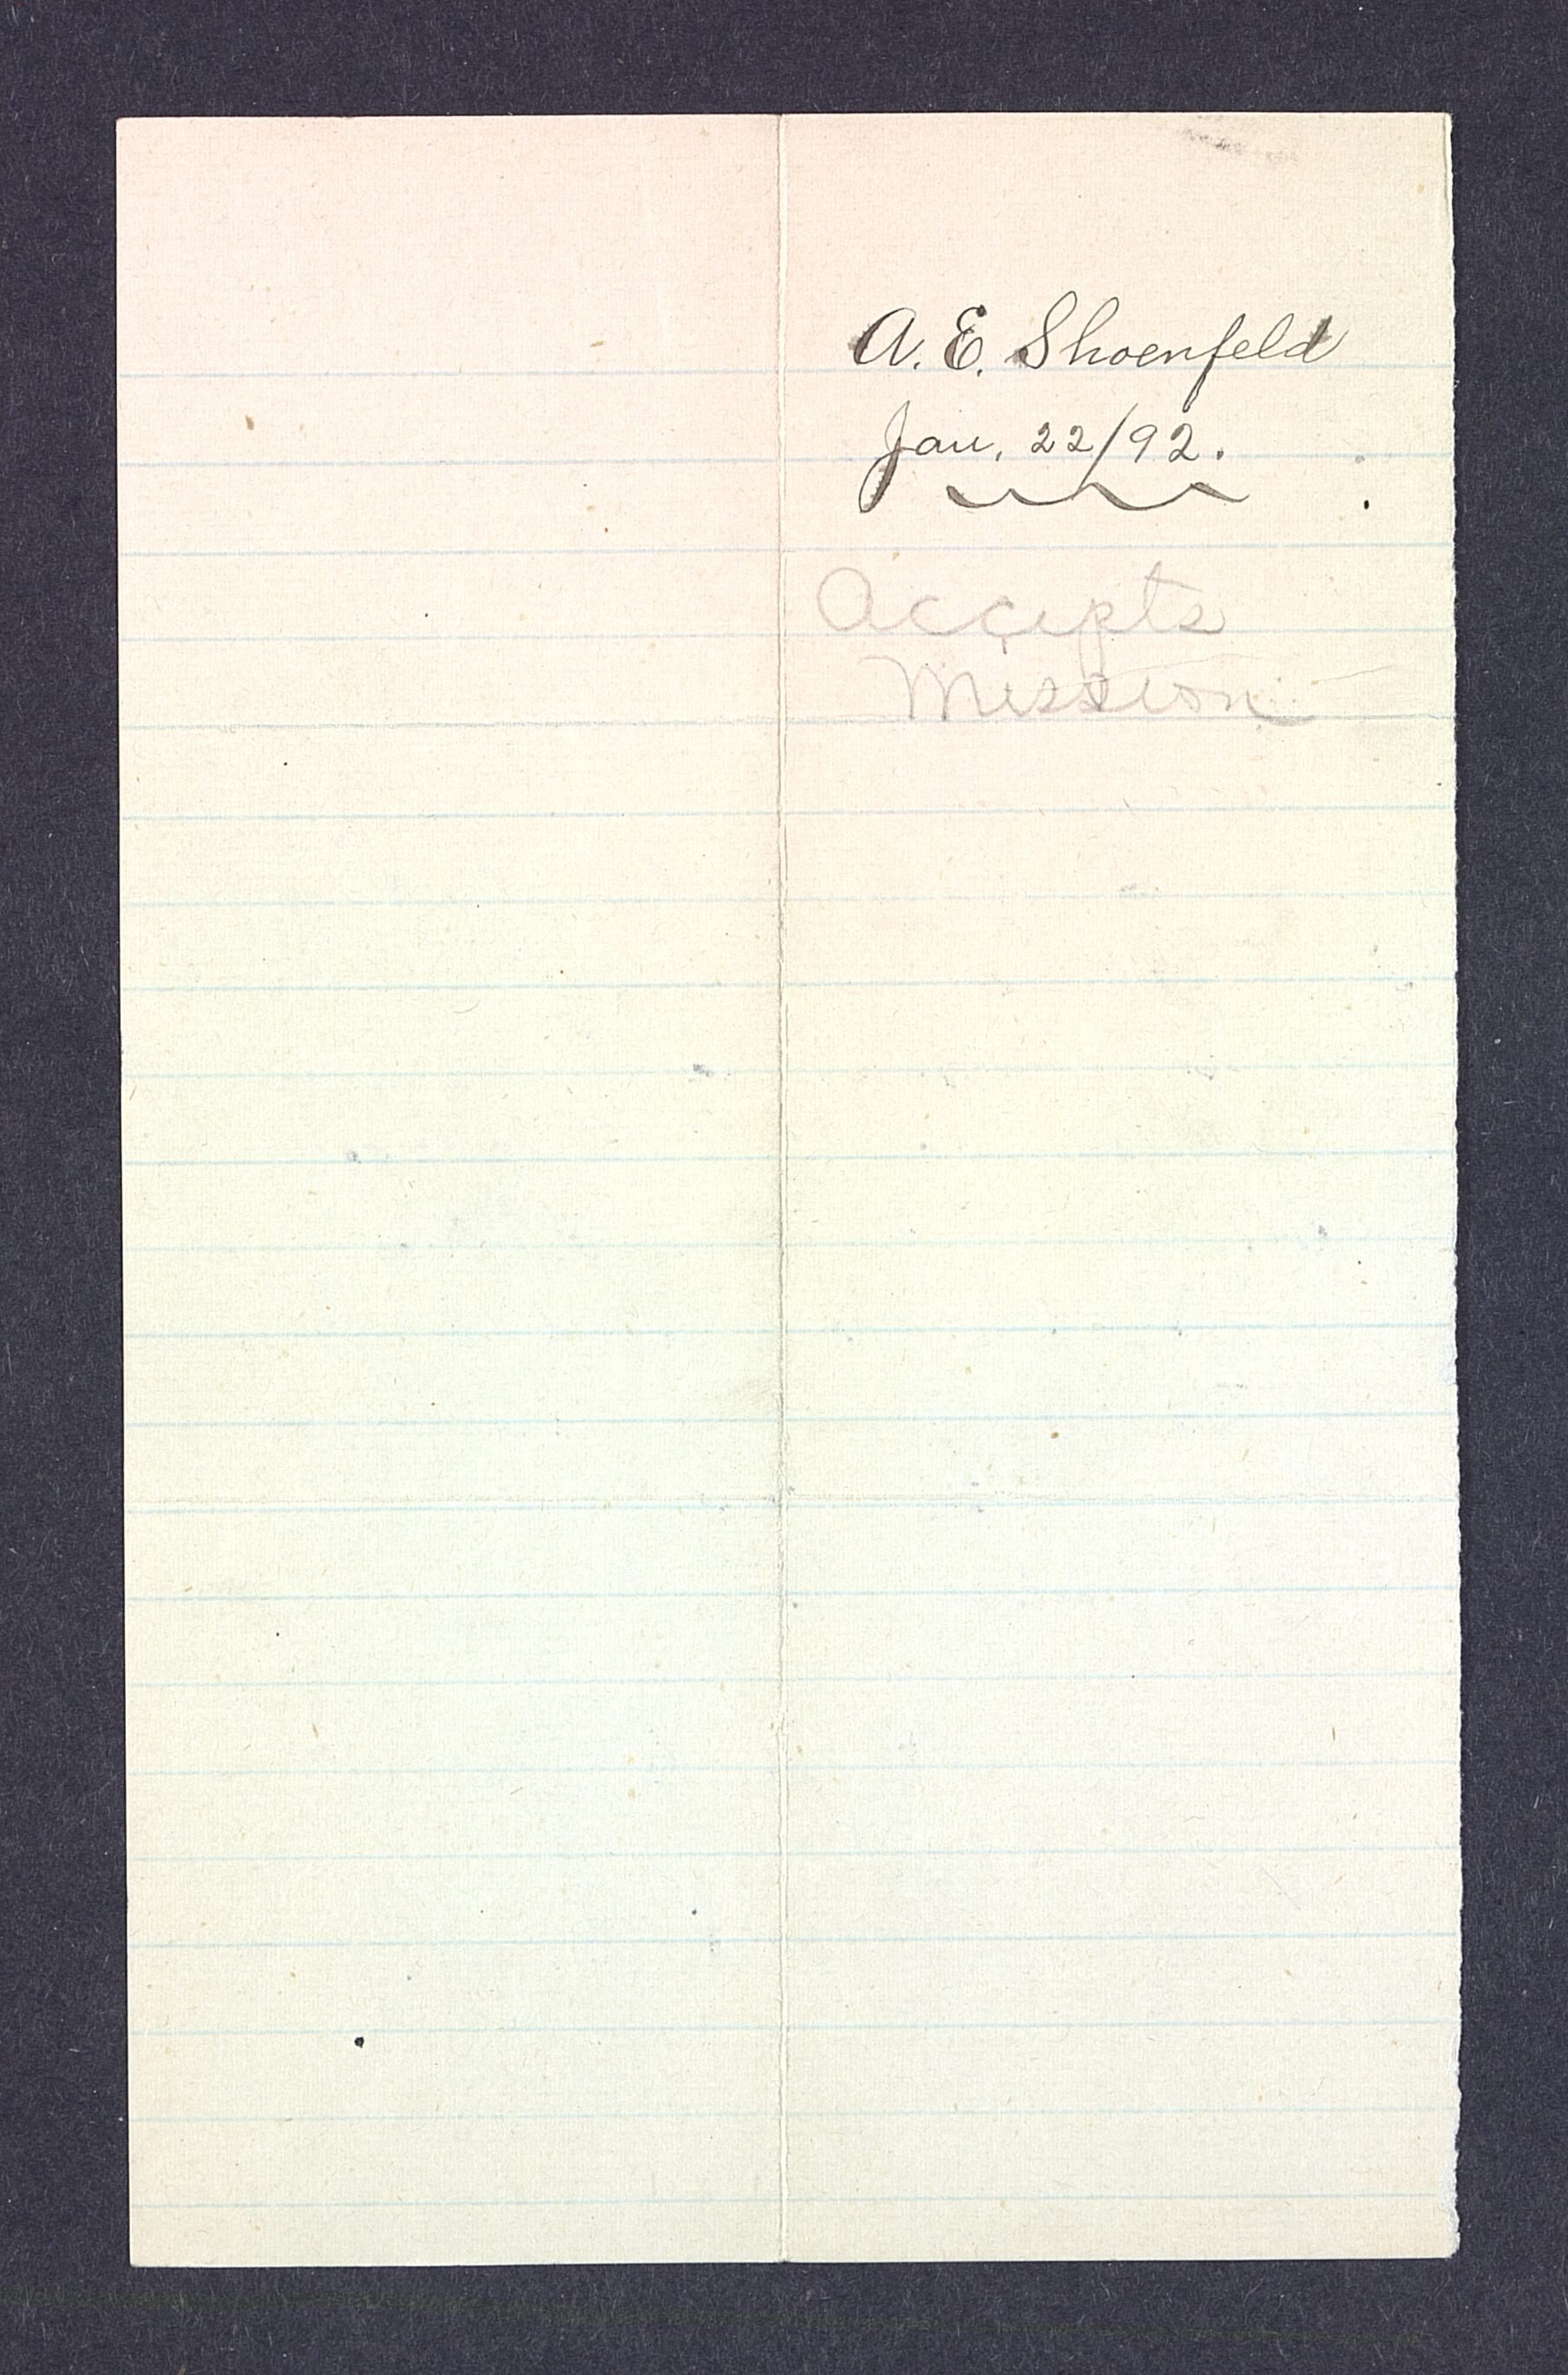 A. E. Shoenfeld
Jan. 22/92.
Accepts
Mission